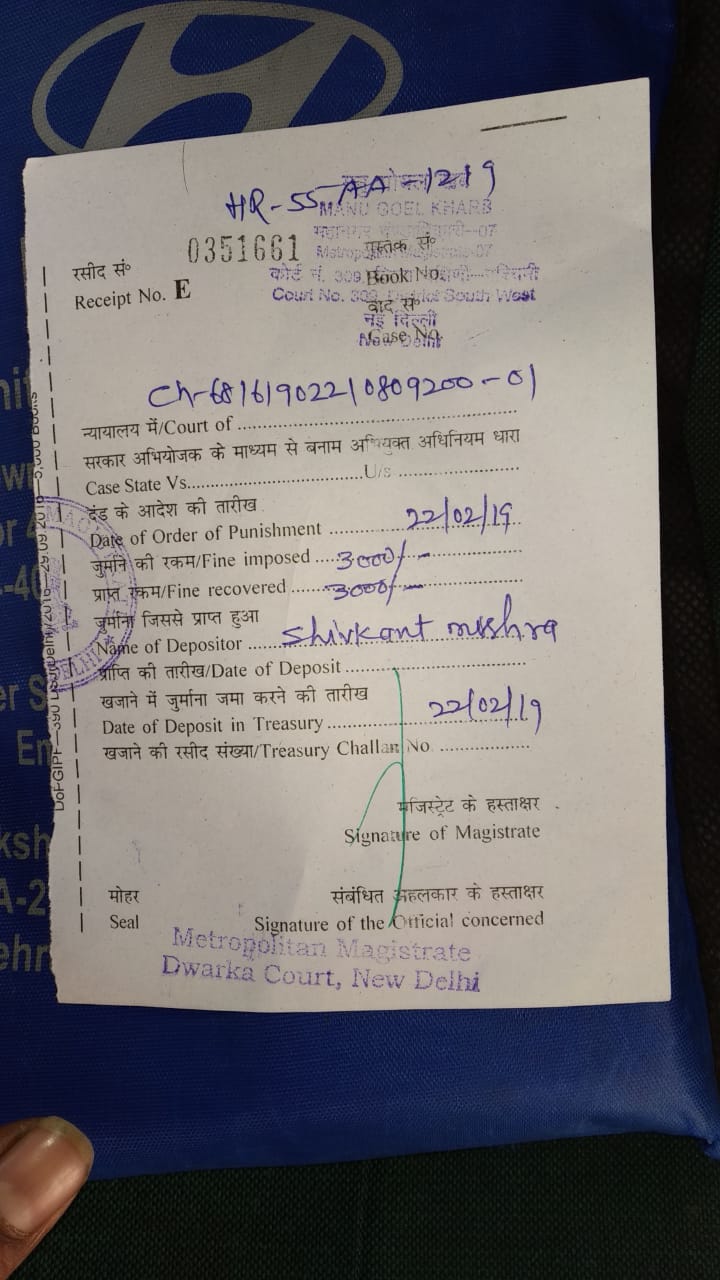 HR-55-AA-1219
MANU GOEL KHARB
महानगर दण्डाधिकारी-07
Metropolitan Magistrate-07
0351661
पुस्तक सं॰
रसीद सं॰
Book No.
Receipt No. E
कोर्ट नं. 309,
Court No. 309, District South West
वाद सं॰
नई दिल्ली
Case No.
New Delhi
Ch-68161902210809200-01
न्यायालय में/Court of
सरकार अभियोजक के माध्यम से बनाम अभियुक्त अधिनियम धारा
Case State Vs. U/s
दंड के आदेश की तारीख
Date of Order of Punishment 22/02/19
जुर्माने की रकम/Fine imposed 3000/-
प्राप्त रकम/Fine recovered 3000/-
जुर्माना जिससे प्राप्त हुआ
Name of Depositor Shivkant mishra
प्राप्ति की तारीख/Date of Deposit
खजाने में जुर्माना जमा करने की तारीख
Date of Deposit in Treasury 22/02/19
खजाने की रसीद संख्या/Treasury Challan No.
मजिस्ट्रेट के हस्ताक्षर
Signature of Magistrate
मोहर
संबंधित अहलकार के हस्ताक्षर
Seal
Signature of the Official concerned
Metropolitan Magistrate
Dwarka Court, New Delhi